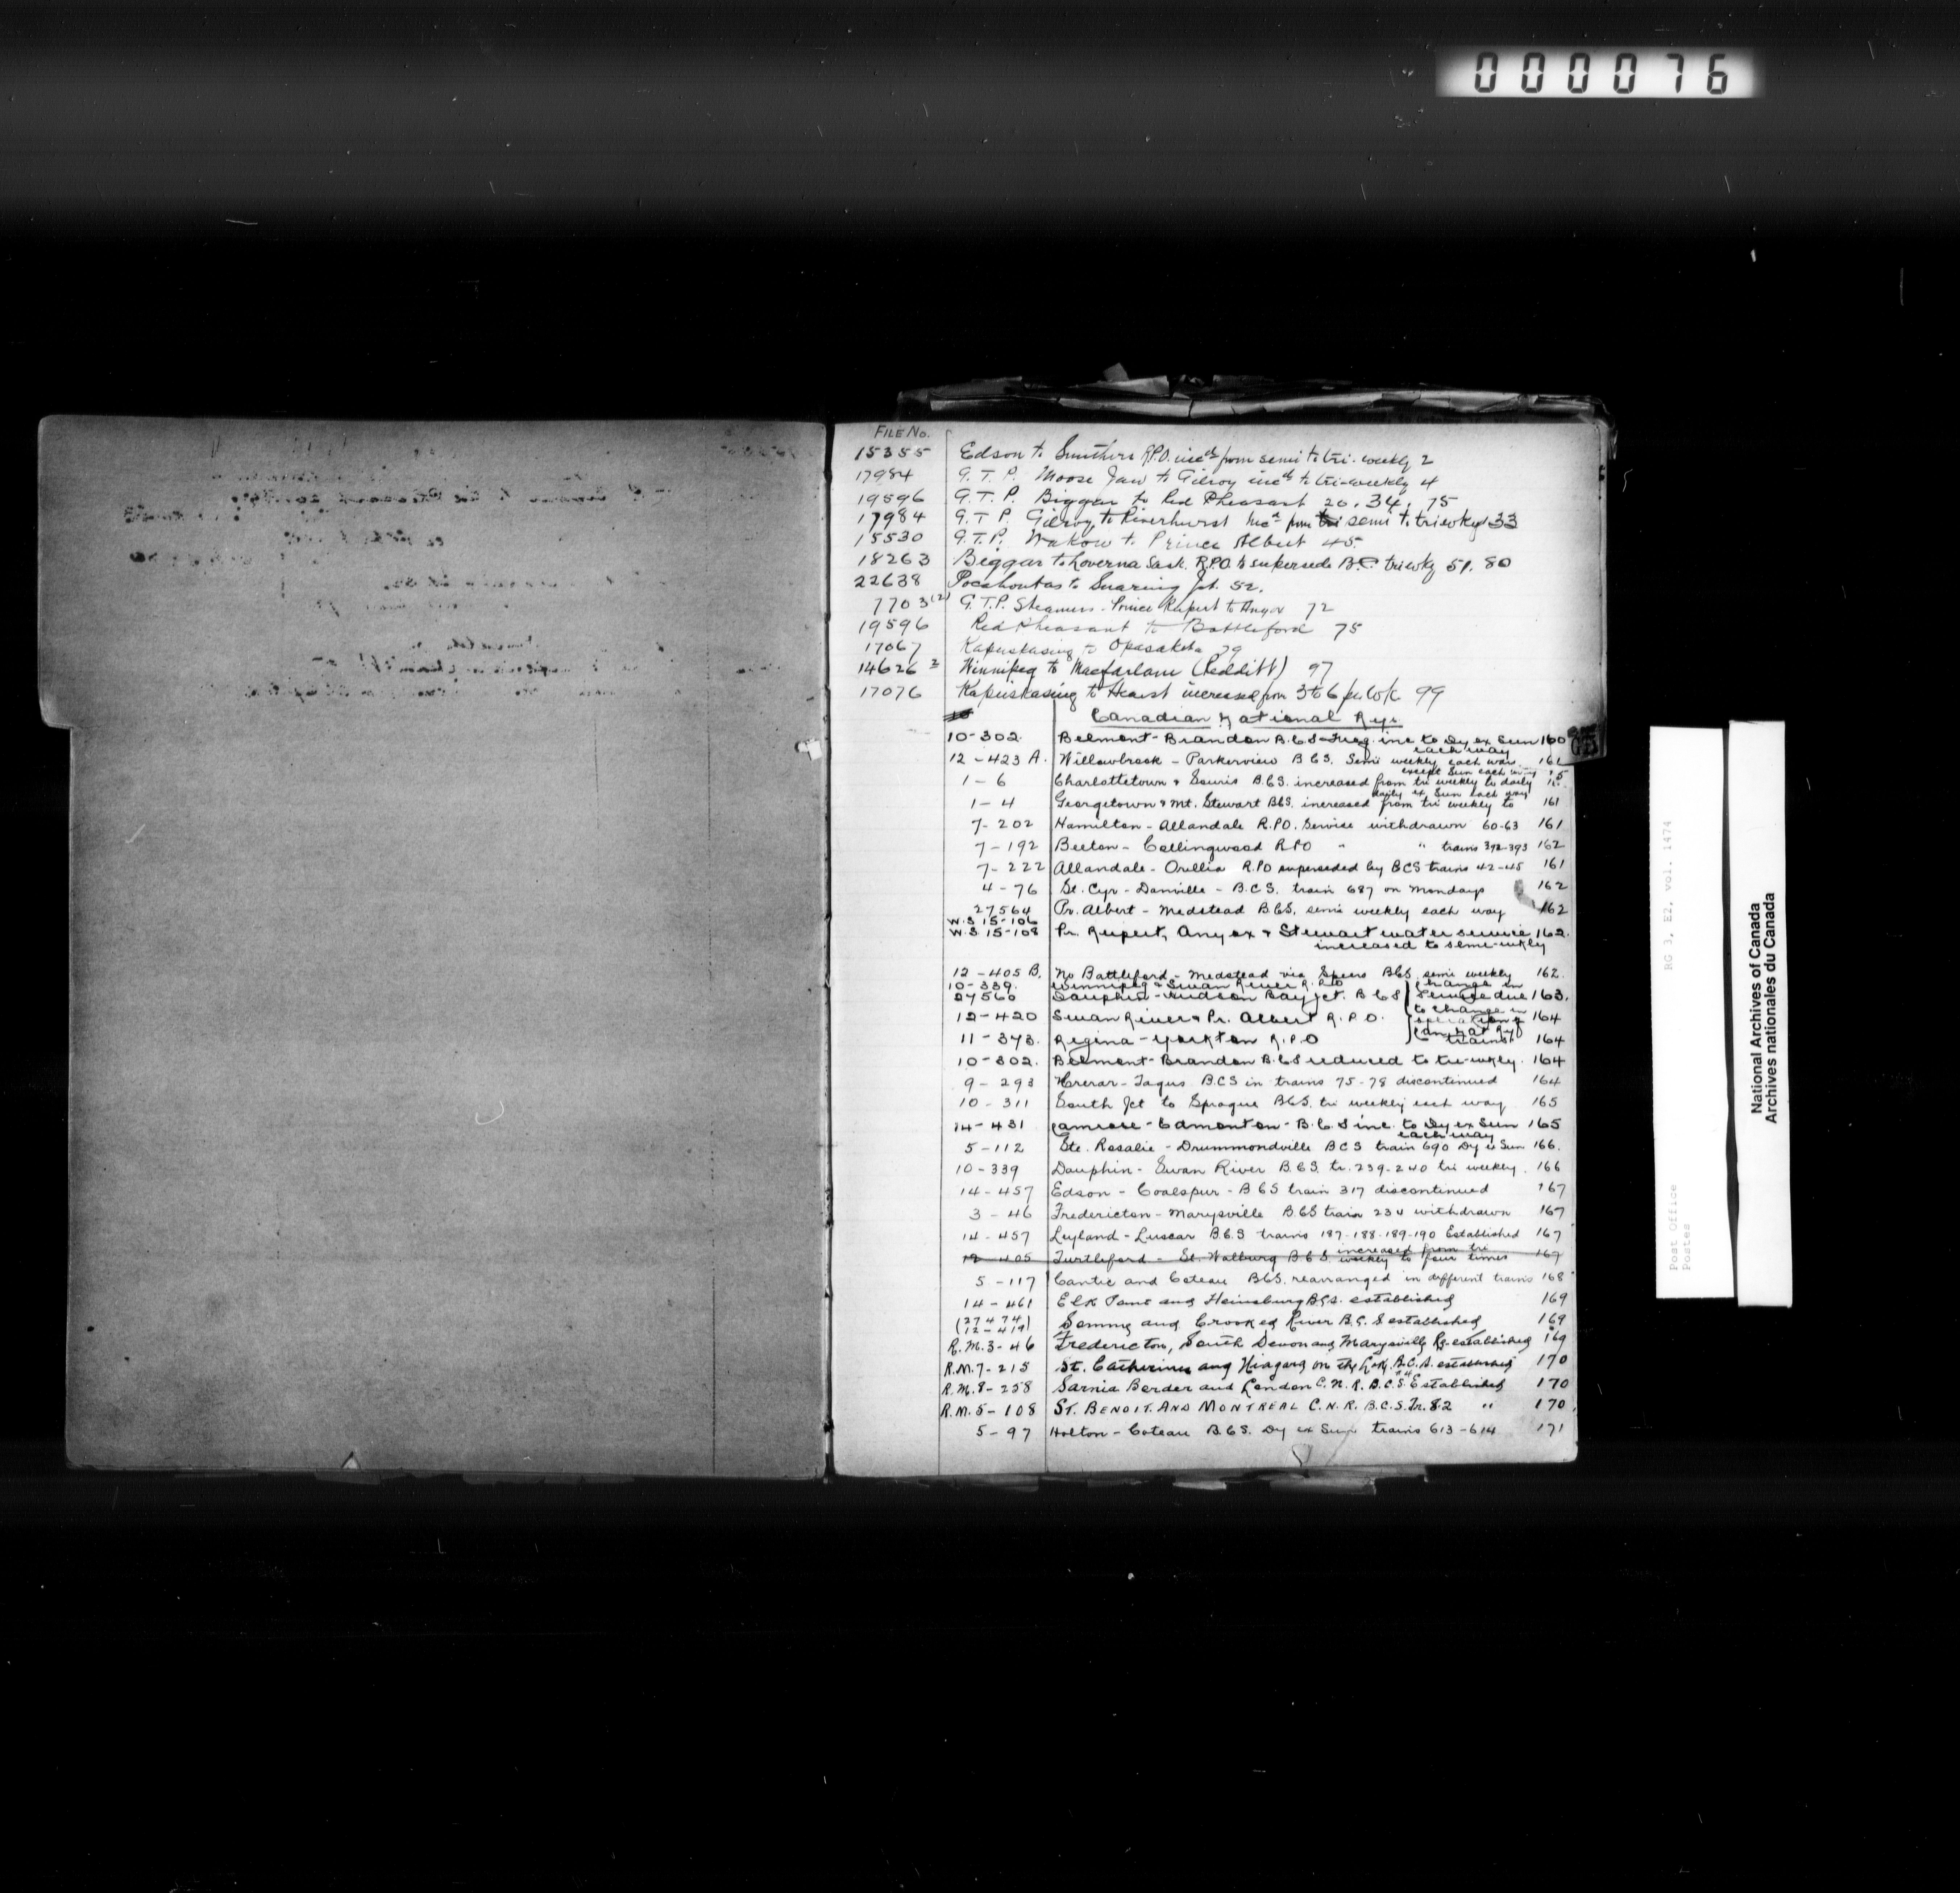 000076
FILE No.
15355 Edson to Smithers R.P.O. incd from semi to tri-weekly 2
17984 G.T.P. Moose Jaw to Gilroy incd to tri-weekly 4
19596 G.T.P. Biggar to Red Pheasant 20, 34, 75
17984 G.T.P. Gilroy to Riverhurst incd from tri semi to triwkly 33
15530 G.T.P. Wakow to Prince Albert 45
18263 Biggar to Loverna Sask. R.P.O. to supersede B.C. triwkly 51, 80
22638 Pocahontas to Snaring Jct. 52.
7703(2) G.T.P. Steamers - Prince Rupert to Anyox 72
19596 Red Pheasant to Battleford 75
17067 Kapuskasing to Opasatika 79
14626 2 Winnipeg to Macfarlane (Redditt) 97
17076 Kapuskasing to Hearst increased from 3 to 6 per wk 99
10 Canadian National Rys
10-302. Belmont - Brandon B.C.S - Freq. inc to Dy ex Sun 160
each way
12-423 A. Willowbrook - Parkerview B.C.S. Semi weekly each way. 161
except Sun each way
1-6 Charlottetown & Souris B.C.S. increased from tri weekly to daily
daily ex Sun each way
1-4 Georgetown & Mt. Stewart B.C.S. increased from tri weekly to 161
7-202 Hamilton - Allandale R.P.O. Service withdrawn 60-63 161
7-192 Beeton - Collingwood R.P.O " " trains 392-393 162
7-222 Allandale - Orillia R.P.O superseded by B.C.S trains 42-45 161
4-76 St. Cyr - Danville - B.C.S. train 687 on Mondays 162
27564 Pr. Albert - Medstead B.C.S. semi weekly each way 162
W.S 15-106
W.S 15-108 Pr. Rupert, Anyox & Stewart water service 162.
increased to semi-wkly
12-405 B. No Battleford - Medstead via Speers B.C.S. semi weekly 162.
10-339. Winnipeg & Swan River R.P.O change in
27560 Dauphin - Hudson Bay Jct. B.C.S service due 163.
to change in
12-420 Swan River & Pr. Albert R.P.O. operation of 164
Can Nat Ry
11-373. Regina - Yorkton R.P.O trains 164
10-302. Belmont - Brandon B.C.S reduced to tri-wkly. 164
9-293 Crerar - Jaqus B.C.S in trains 75-78 discontinued 164
10-311 South Jct to Sprague B.C.S. tri weekly each way. 165
14-431 Camrose - Edmonton - B.C.S inc. to Dy ex Sun 165
each way
5-112 Ste. Rosalie - Drummondville B.C.S train 690 Dy x Sun 166.
10-339 Dauphin - Swan River B.C.S. tr. 239-240 tri weekly. 166
14-457 Edson - Coalspur - B.C.S train 317 discontinued 167
3-46 Fredericton - Marysville B.C.S train 234 withdrawn 167
14-457 Leyland - Luscar B.C.S trains 187-188-189-190 Established 167
increased from tri
12-405 Turtleford - St. Walburg B.C.S weekly to four times 167
5-117 Cantic and Coteau B.C.S. rearranged in different trains 168
14-461 Elk Point and Heinsburg B.C.S. established 169
(27474)
(12-419) Somme and Crooked River B.C.S established 169
R.M. 3-46 Fredericton, South Devon and Marysville Ry. established 169
R.M. 7-215 St. Catharines and Niagara on the Lake B.C.S. established 170
R.M. 8-258 Sarnia Border and London C.N.R. B.C.S. Established 170
R.M. 5-108 ST. BENOIT. AND MONTREAL C.N.R. B.C.S. Tr. 82 " 170
5-97 Holton - Coteau B.C.S. Dy ex Sun trains 613-614 171
RG 3, E2, vol. 1474
Post Office
Postes
National Archives of Canada
Archives nationales du Canada